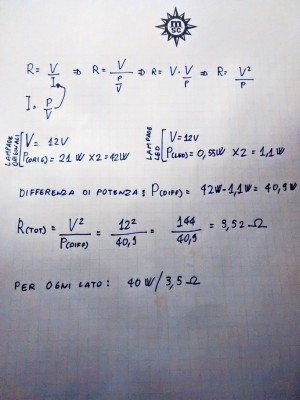 msc
R = V/I ⇒ R = V/(P/V) ⇒ R = V · V/P ⇒ R = V²/P
I = P/V
LAMPADE ORIGINALI [ V = 12V
P(ORIG) = 21 W x2 = 42W
LAMPADE LED [ V = 12V
P(LED) = 0,55W x 2 = 1,1W
DIFFERENZA DI POTENZA : P(DIFF) = 42W - 1,1W = 40,9W
R(TOT) = V²/P(DIFF) = 12²/40,9 = 144/40,9 = 3,52 Ω
PER OGNI LATO : 40W/3,5 Ω